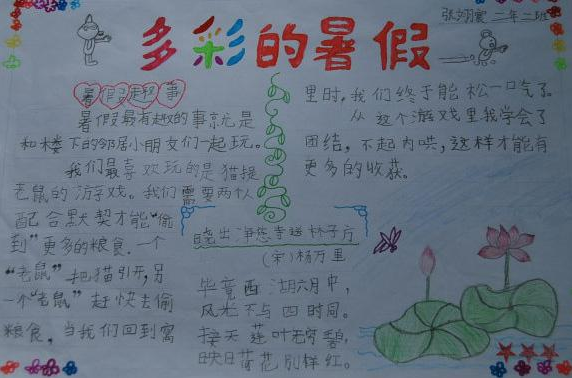 多彩的暑假
张翊宸 二年二班
暑假趣事
暑假最有趣的事就是
和楼下的邻居小朋友们一起玩。
我们最喜欢玩的是猫捉
老鼠的游戏。我们需要两个人
配合默契才能“偷
到”更多的粮食。一个
“老鼠”把猫引开,另
一个“老鼠”赶快去偷
粮食。当我们回到窝
里时,我们终于能松一口气了。
从这个游戏里我学会了
团结,不起内哄,这样才能有
更多的收获。
晓出净慈寺送林子方
(宋)杨万里
毕竟西湖六月中,
风光不与四时同。
接天莲叶无穷碧,
映日荷花别样红。